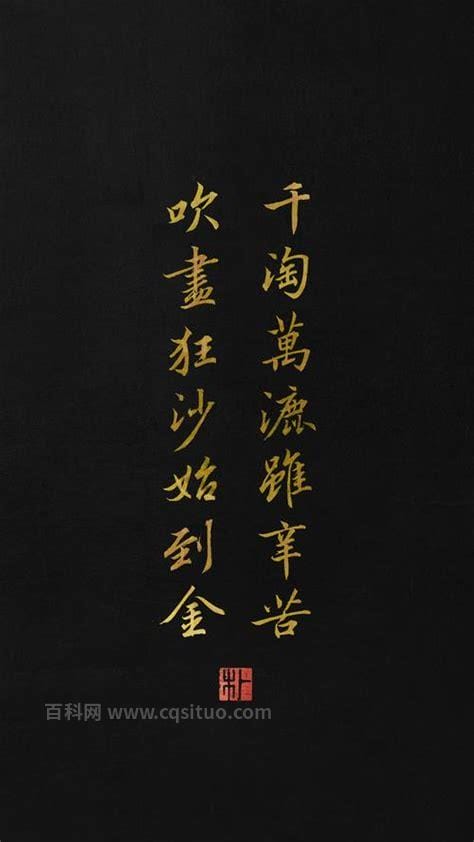 千淘萬漉雖辛苦
吹盡狂沙始到金
百科网 www.cqsituo.com